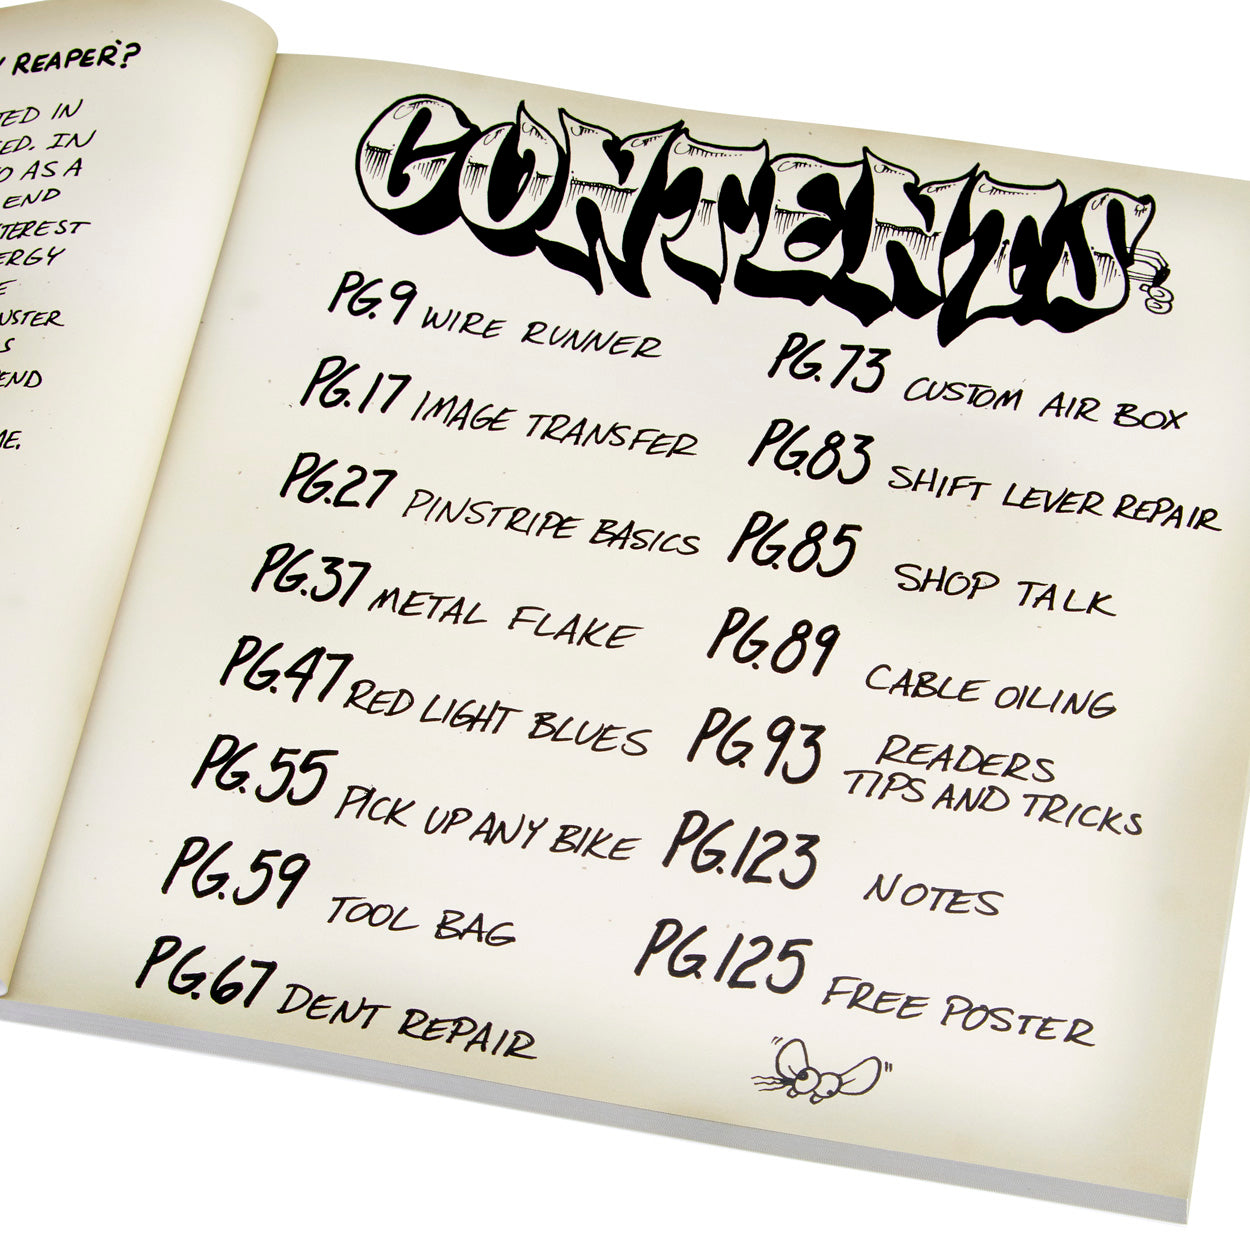 REAPER?
IN
IN
AS A
END
CONTENTS
PG.9 WIRE RUNNER
PG.17 IMAGE TRANSFER
PG.27 PINSTRIPE BASICS
PG.37 METAL FLAKE
PG.47 RED LIGHT BLUES
PG.55 PICK UP ANY BIKE
PG.59 TOOL BAG
PG.67 DENT REPAIR
PG.73 CUSTOM AIR BOX
PG.83 SHIFT LEVER REPAIR
PG.85 SHOP TALK
PG.89 CABLE OILING
PG.93 READERS
TIPS AND TRICKS
PG.123 NOTES
PG.125 FREE POSTER